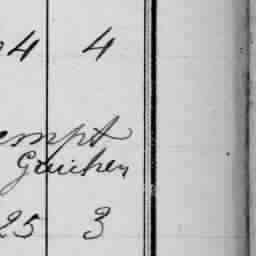 4 4
empt
Guichen
25 3